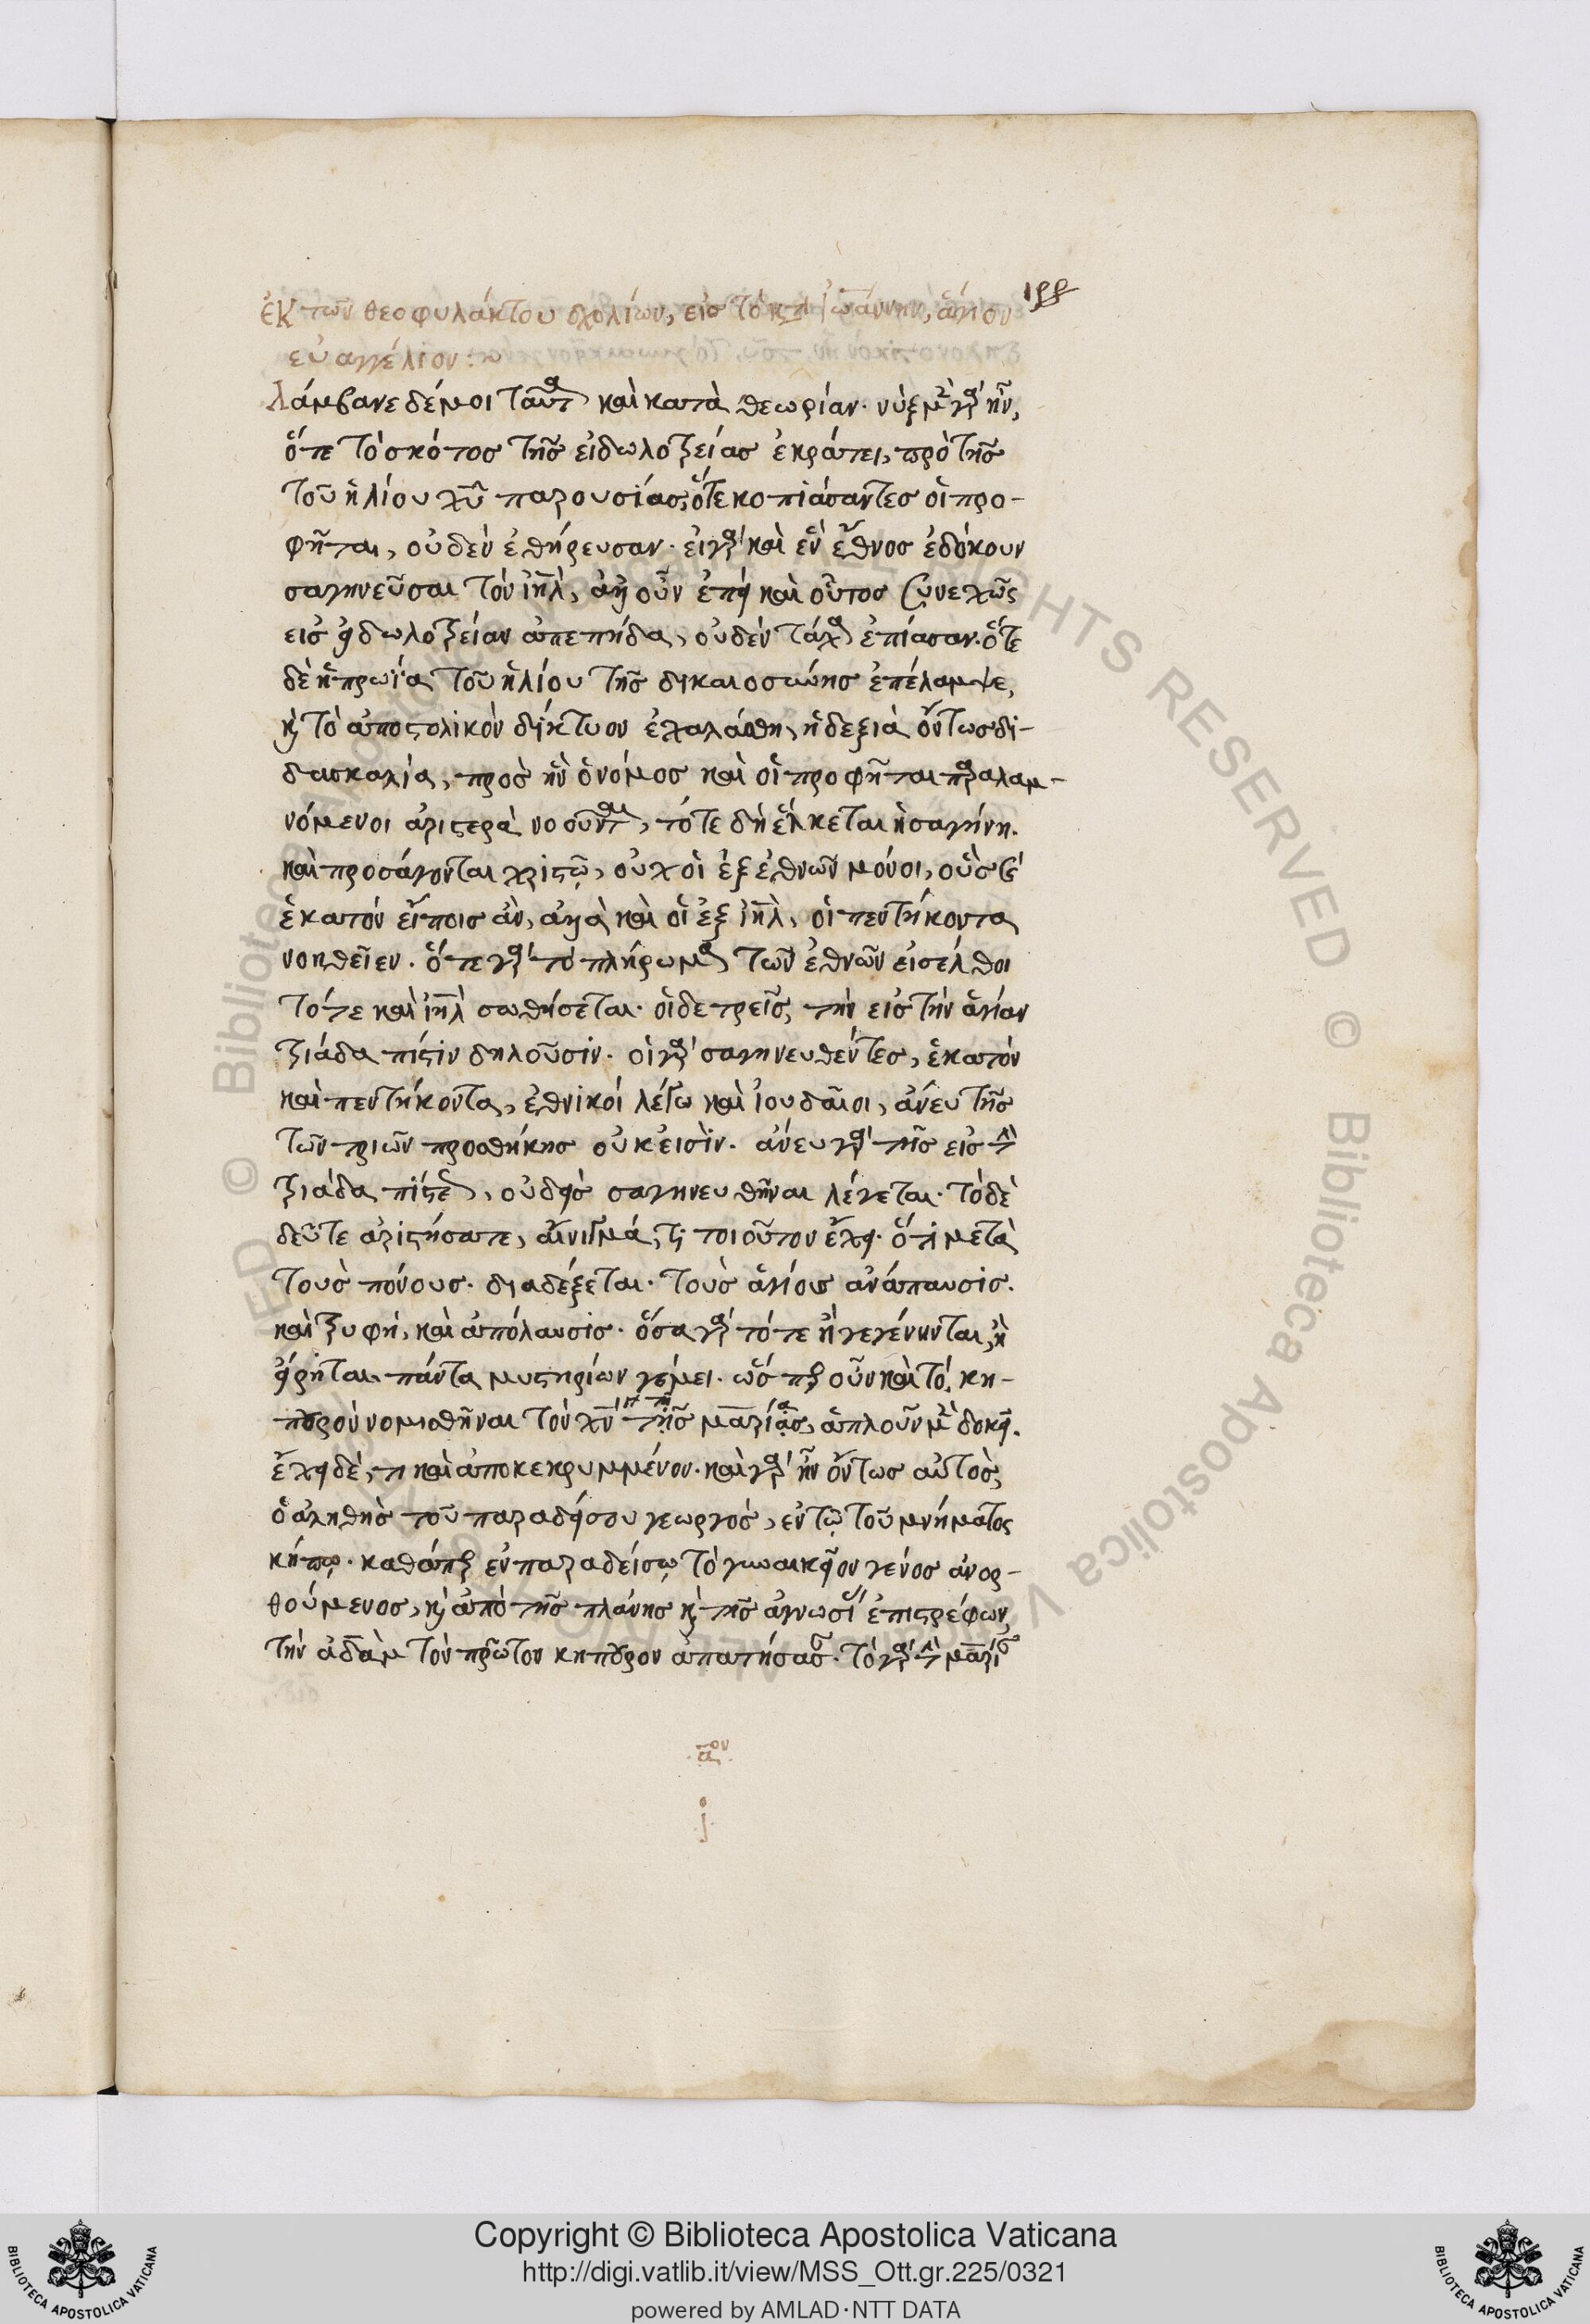 ἐκ τῶν θεοφυλάκτου σχολίων, εἰσ τὸ κτ ἰωάννην, ἅγιον
εὐαγγέλιον:
Λάμβανε δέ μοι ταῦτα καὶ κατὰ θεωρίαν· νὺξ μὲν γὰρ ἦν,
ὅτε τὸ σκότοσ τῆσ εἰδωλολατρείασ ἐκράτει, πρὸ τῆσ
τοῦ ἡλίου χῦ παρουσίασ, ὅτε κοπιάσαντεσ οἱ προ-
φῆται, οὐδὲν ἐθήρευσαν· εἰ γὰρ καὶ ἓν ἔθνοσ ἐδόκουν
σαγηνεῦσαι τὸν ἰηλ, ἀλλ' οὖν ἐπεὶ καὶ οὗτοσ συνεχῶς
εἰσ εἰδωλολατρείαν ἀπεπήδα, οὐδὲν τάχα ἐπίασαν. ὅτε
δὲ ἡ πρωΐα τοῦ ἡλίου τῆσ δικαιοσύνησ ἐπέλαμψε,
κὶ τὸ ἀποστολικὸν δίκτυον ἐχαλάσθη, ἡ δεξιὰ ὄντωσ δι-
δασκαλία, πρὸσ ἣν ὁ νόμοσ καὶ οἱ προφῆται παραλαμ-
νόμενοι ἀριστερὰ νοοῦνται, τότε δὴ ἕλκεται ἡ σαγήνη.
καὶ προσάγονται χριστῷ, οὐχ οἱ ἐξ ἐθνῶν μόνοι, οὓσ τὲ
ἑκατὸν εἴποισ ἂν, ἀλλὰ καὶ οἱ ἐξ ἰηλ, οἱ πεντήκοντα
νοηθεῖεν. ὅτε γὰρ τὸ πλήρωμα τῶν ἐθνῶν εἰσέλθοι
τότε καὶ ἰηλ σωθήσεται· οἱ δὲ τρεῖσ, τὴν εἰσ τὴν ἁγίαν
τριάδα πίστιν δηλοῦσιν. οἱ γὰρ σαγηνευθέντεσ, ἑκατὸν
καὶ πεντήκοντα, ἐθνικοί λέγω καὶ ἰουδαῖοι, ἄνευ τῆσ
τῶν τριῶν προσθήκησ οὐκ εἰσὶν. ἄνευ γὰρ τῆσ εἰσ τὴν
τριάδα πίστεωσ, οὐδεὶσ σαγηνευθῆναι λέγεται. τὸ δὲ
δεῦτε ἀριστήσατε, αἴνιγμά, τι τοιοῦτον ἔχει. ὅτι μετὰ
τοὺσ πόνουσ· διαδέξεται· τοὺσ ἁγίουσ ἀνάπαυσισ.
καὶ τρυφή, καὶ ἀπόλαυσισ. ὅσα γὰρ τότε ἢ γεγένηνται, ἢ
εἴρηται, πάντα μυστηρίων γέμει. ὥσπερ οὖν καὶ τὸ, κη-
πουρὸν νομισθῆναι τὸν χν τῆσ μαρίασ, ἁπλοῦν μὲν δοκεῖ.
ἔχει δὲ, τι καὶ ἀποκεκρυμμένον. καὶ γὰρ ἦν ὄντωσ αὐτὸσ,
ὁ ἀληθὴσ τοῦ παραδείσου γεωργὸσ, ἐν τῷ τοῦ μνήματος
κήπῳ. καθάπερ ἐν παραδείσῳ τὸ γυναικεῖον γένοσ ἀνορ-
θούμενοσ, κὶ ἀπὸ τῆσ πλάνησ κὶ τῆσ ἀγνωσί ἐπιστρέφων,
τὴν ἀδὰμ τὸν πρῶτον κηπουρὸν ἀπατήσασ. τὸ γὰρ τὴν μαρί
·αον·